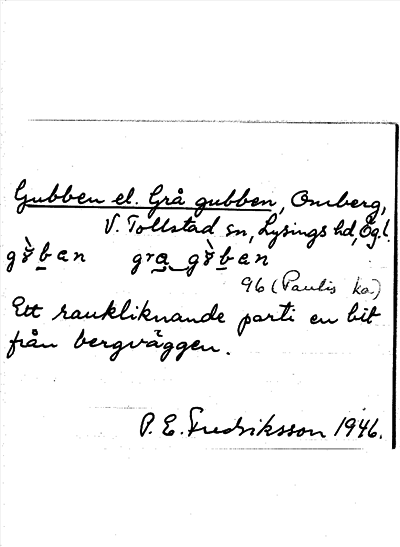 Gubben el. Grå gubben, Omberg,
V. Tollstad sn, Lysings hd, Ög.l.
96 (Paulis ka.)
Ett raukliknande parti en bit
från bergväggen.
P. E. Fredriksson 1946.